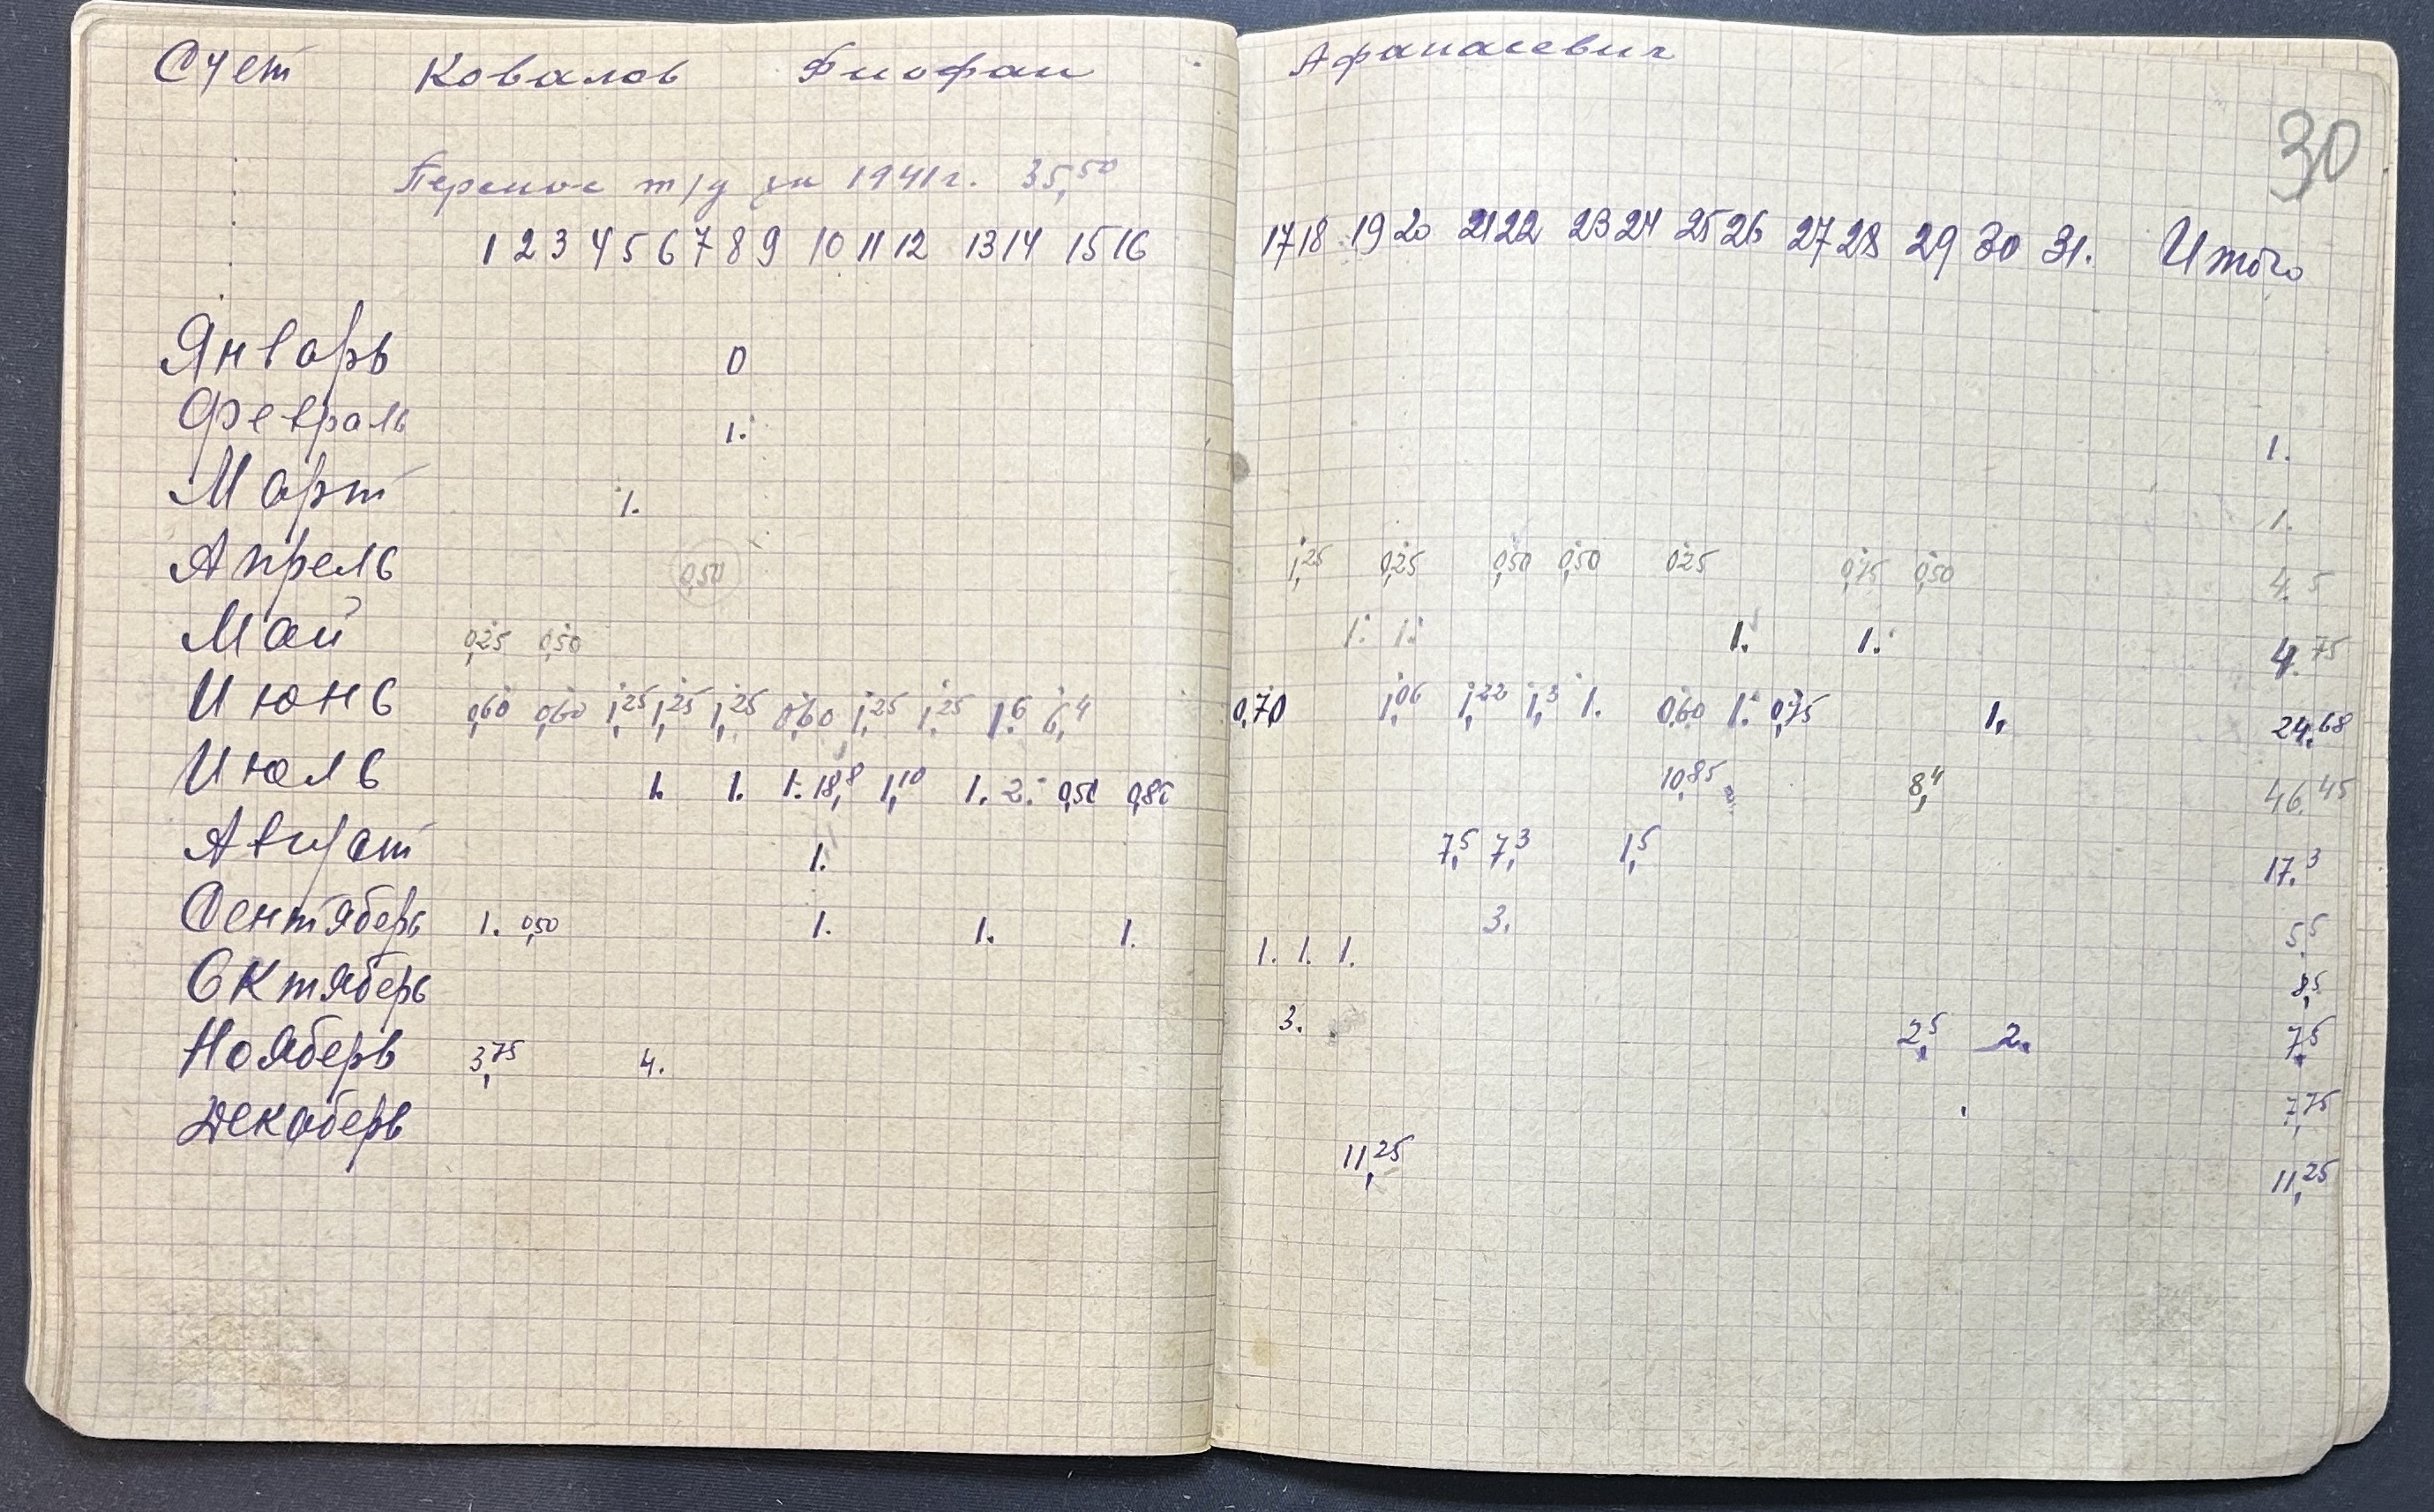 Счет Ковалов Фиофан Афанасевич
30
Перенос т/д за 1941 г. 35,50
1 2 3 4 5 6 7 8 9 10 11 12 13 14 15 16 17 18 19 20 21 22 23 24 25 26 27 28 29 30 31. Итого
Январь 0
Февраль 1. 1.
Март 1. 1.
Апрель 0,50 1,25 0,25 0,50 0,50 0,25 0,75 0,50 4.5
Май 0,25 0,50 1. 1. 1. 1. 4.75
Июнь 0,60 0,60 1,25 1,25 1,25 0,60 1,25 1,25 1.6 6,4 0,70 1,06 1,22 1,3 1. 0,60 1. 0,75 1. 24.68
Июль 1. 1. 1. 18,8 1,10 1. 2. 0,50 0,80 10,85 8,4 46.45
Август 1. 7,5 7,3 1,5 17.3
Сентяберь 1. 0,50 1. 1. 1. 3. 5,5
Октяберь 1. 1. 1. 8,5
Нояберь 3,75 4. 3. 2,5 2. 7,5
Декаберь 7,75
11,25 11,25